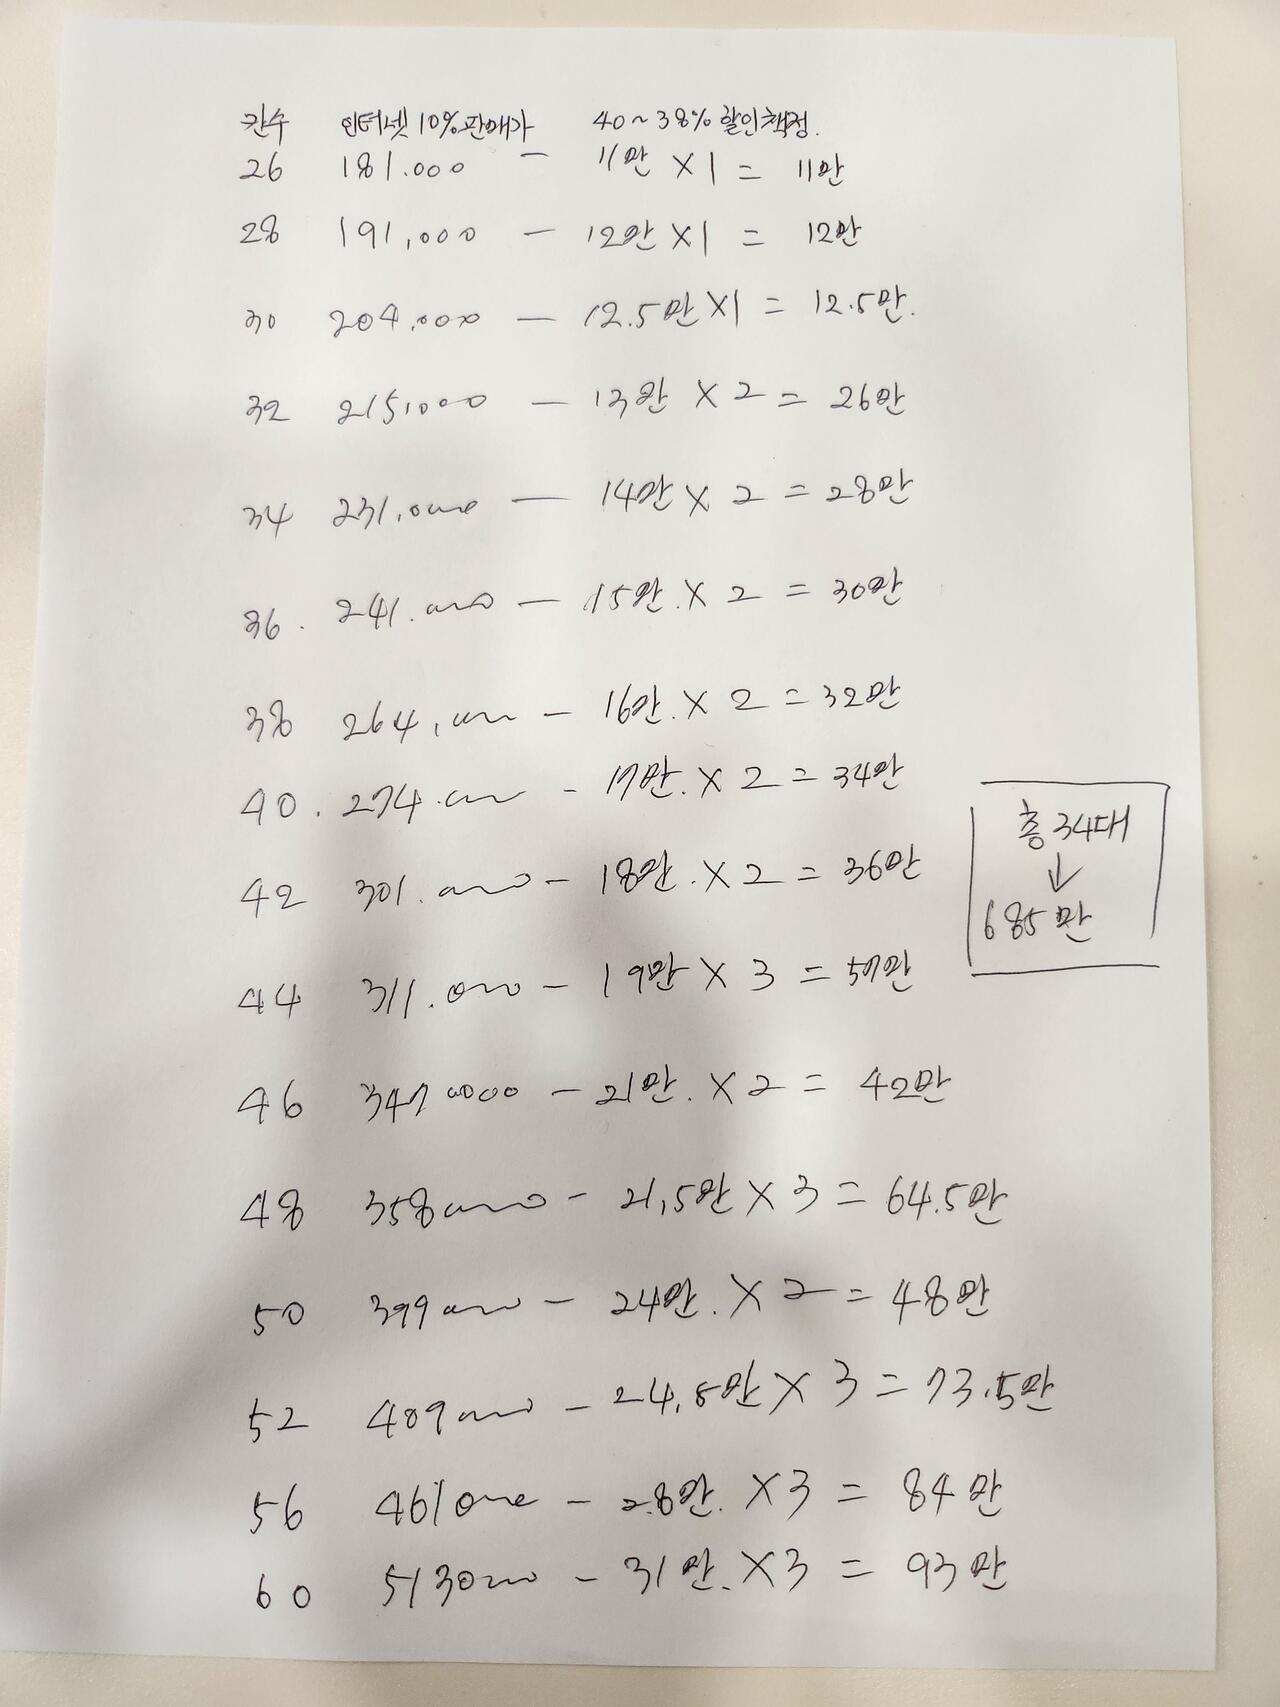 칸수 인터넷 10% 판매가 40~38% 할인책정.
26 181.000 - 11만 X 1 = 11만
28 191,000 - 12만 X 1 = 12만
30 204.000 - 12.5만 X 1 = 12.5만.
32 215,000 - 13만 X 2 = 26만
34 231.000 - 14만 X 2 = 28만
36. 241.000 - 15만. X 2 = 30만
38 264,000 - 16만. X 2 = 32만
40. 274.000 - 17만. X 2 = 34만
42 301.000 - 18만. X 2 = 36만
44 311.000 - 19만 X 3 = 57만
46 347000 - 21만. X 2 = 42만
48 358000 - 21,5만 X 3 = 64.5만
50 399000 - 24만. X 2 = 48만
52 409000 - 24,5만 X 3 = 73.5만
56 461000 - 28만. X 3 = 84만
60 513000 - 31만. X 3 = 93만
총 34대
↓
685만